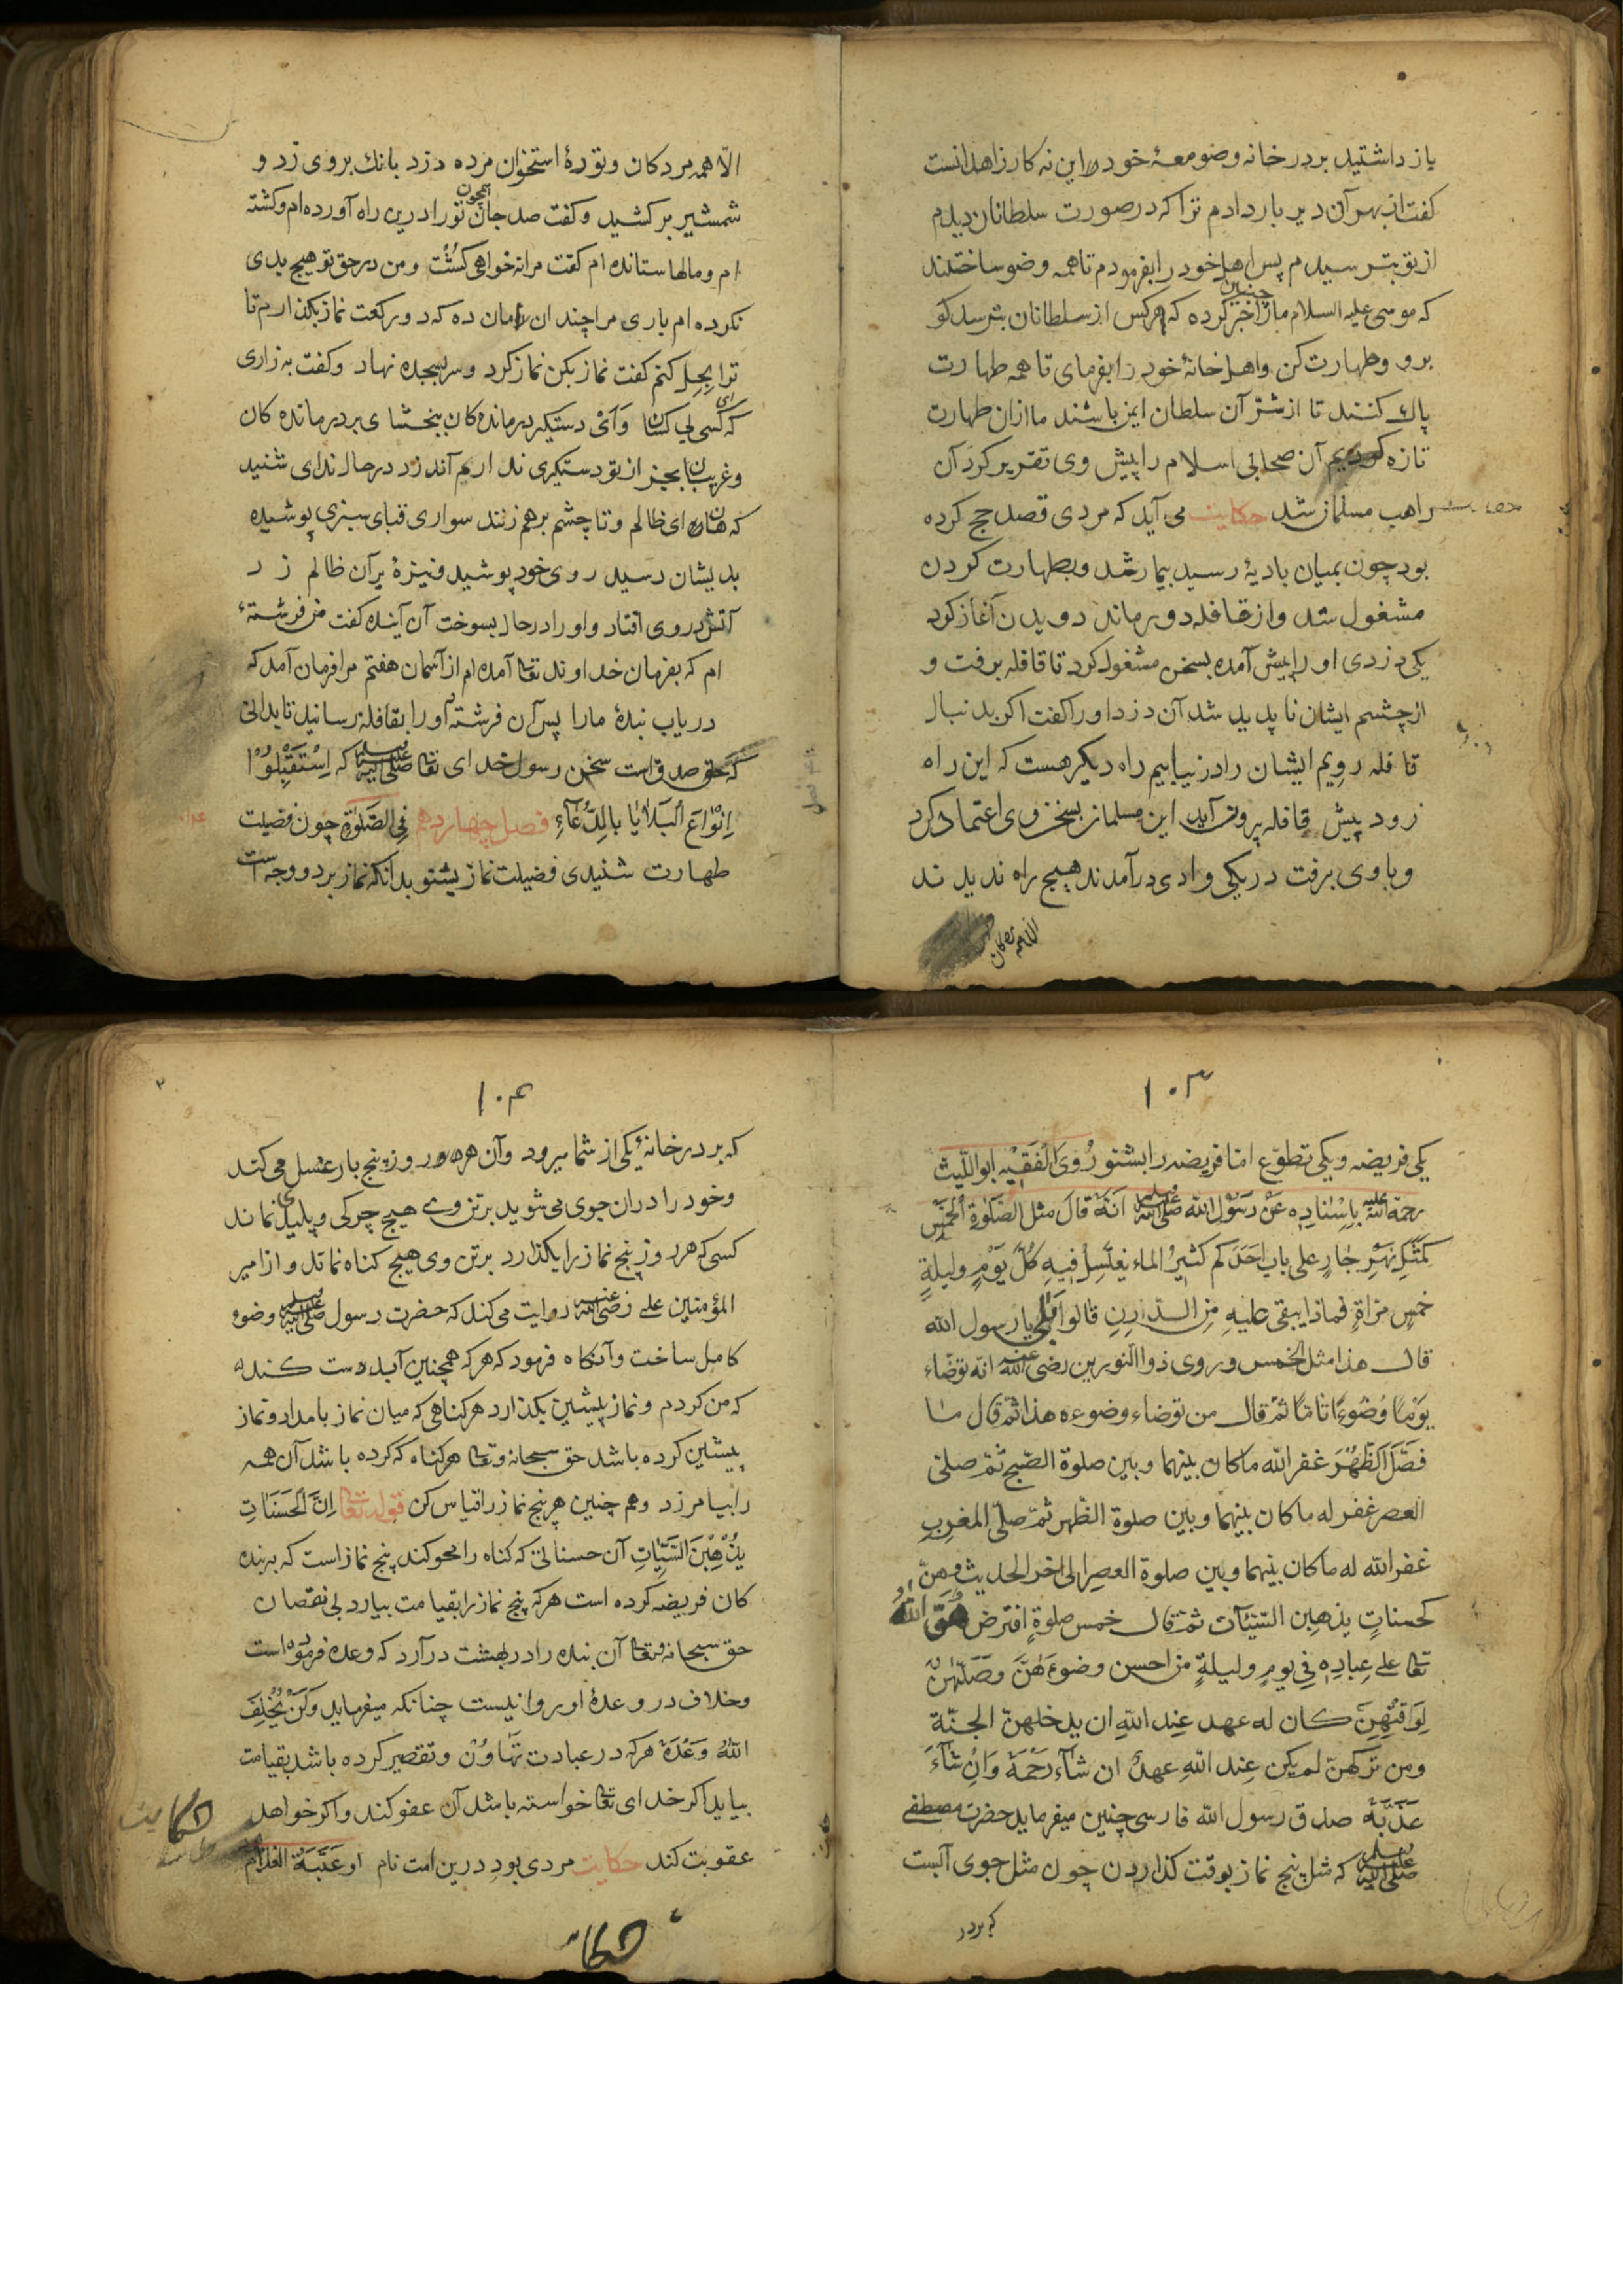 باز داشتید بر در خانه وضومعهٔ خود را این نه کار زاهدانست
کفت از بهر آن دیر بار دادم ترا که در صورت سلطانان دیدم
از تو بترسیدم پس اهل خود را بفرمودم تا همه وضو ساختند
که موسی علیه السلام مارا چنین خبر کرده که هرکس از سلطانان بترسد کو
برو وطهارت کن واهل خانهٔ خود را بفرمای تا همه طهارت
پاك کنند تا از شرّ آن سلطان ایمن باشند ما ازان طهارت
تازه کردیم آن صحابی اسلام را پیش وی تقریر کرد آن
راهب مسلمان شد حکایت می آید که مردی قصد حج کرده
بود چون بمیان بادیهٔ رسید بیمار شد وبطهارت کردن
مشغول شد واز قافله دور ماند دویدن آغاز کرد
یکی دزدی او را پیش آمده بسخن مشغول کرد تا قافله برفت و
از چشم ایشان ناپدید شد آن دزد او را کفت اکر بدنبال
قافله رویم ایشان را در نیابیم راه دیکر هست که این راه
زود پیش قافله بیرون آید این مسلمان بسخن وی اعتماد کرد
وباوی برفت در یکی وادی درآمدند هیچ راه ندیدند
الّا همه مردکان
الّا همه مردکان وتودهٔ استخوان مرده دزد بانك بروی زد و
شمشیر برکشید وکفت صد جان همچون تو را درین راه آورده ام وکشته
ام ومالها ستانده ام کفت مرا نه خواهی کشت ومن در حق تو هیچ بدی
نکرده ام باری مرا چندان امان ده که دو رکعت نماز بکذارم تا
ترا بحل کنم کفت نماز بکن نماز کرد وسر بسجده نهاد وکفت به زاری
که ای کس بی کسان وای دستکیر درماندەکان ببخشای بر درماندەکان
وغریبان بجز از تو دستکیری نداریم آندزد در حال ندای شنید
که هان ای ظالم وتا چشم برهم زنند سواری قبای سبزی پوشیده
بدیشان رسید روی خود پوشید ونیزهٔ بر آن ظالم زد
آتش در وی افتاد واو را در حال بسوخت آن آینده کفت من فرشتهٔ
ام که بفرمان خداوند تعا آمده ام از آسمان هفتم مرا فرمان آمد که
دریاب بندهٔ مارا پس آن فرشته اورا بقافله رسانید تا بدانی
که حق صدق است سخن رسول خدای تعا صلی الله علیه وسلم که اِسْتَقْبِلُوْا
اَنْوٰاعَ اَلْبَلاٰیٰا بِالدُّعٰآءِ فصل چهاردهم فِی الصَّلٰوةِ چون فضیلت
طهارت شنیدی فضیلت نماز بشنو بدانکه نماز بر دو وجه است
۱۰۳
یکی فریضه ویکی تطوّع امّا فریضه را بشنو رُوِیَ الْفَقِیْه ابو اللّیث
رحمة الله علیه بِاِسْنٰادِه عَنْ رَسُوْلِ الله صلی الله علیه وسلم اَنَّهُ قٰالَ مثل الصَّلٰوةِ الْخَمْسِ
کَمَثَلِ نَهْرٍ جٰارٍ علی باب اَحَدِکم کَثِیرُ الماء یغتَسِلُ فِیهِ کُلَّ یَوْمٍ ولیلةٍ
خمسٍ مرّاةٍ فماذا یبقی علیهِ مِن الدرنِ قالوا بلی یا رسول الله
قال هذا مثل الخمس وروی ذو النورین رضی الله عنه انّه توضّاء
یَوْمًا وُضُوءًا تامًا ثمّ قال من توضاء وضوءه هذا ثمّ قال
فصَلَّی الظُّهْرَ غفر الله ماکان بینهما وبین صلوة الصّبح ثمّ صلّی
العصر غفر له ماکان بینهما وبین صلوة الظّهر ثمّ صلّی المغرِبِ
غفر الله له ماکان بینهما وبین صلوة العصرِ الی اخر الحدیث وهنّ
کحسناتٍ یذهِبن السّیئآت ثمّ قال خمس صلوةٍ افترض الله
تعا علی عِبادِهِ فِی یومٍ ولیلةٍ من احسن وضوءَهُنَّ وصَلّیٰهُنّ
لِوَقْتِهِنَّ کان له عهد عِند اللهِ ان یدخلهنّ الجنّة
ومن ترکهنّ لم یکن عِند اللهِ عهدٌ ان شآءَ رَحِمَهُ وَاِنْ شٰآءَ
عَذَّبَهُ صدق رسول الله فارسی چنین میفرماید حضرت مصطفی
صلی الله علیه وسلم که مثل پنج نماز بوقت کذاردن چون مثل جوی آبست
که بر در
۱۰۴
که بر در خانهٔ یکی از شما میرود وآن هر روز پنج بار غسل می کند
وخود را دران جوی می شوید بر تن وی هیچ چرکی وپلیدی نماند
کسی که هر روز پنج نماز را بکذارد بر تن وی هیچ کناه نماند واز امیر
المؤمنین علی رضی الله عنه روایت می کند که حضرت رسول صلی الله علیه وسلم وضوء
کامل ساخت وآنکاه فرمود که هر که همچنین آبدست کند
که من کردم ونماز پیشین بکذارد هر کناهی که میان نماز بامداد ونماز
پیشین کرده باشد حق سبحانه وتعا هر کناه که کرده باشد آن همه
را بیامرزد وهم چنین هر پنج نماز را قیاس کن قوله تعا اِنَّ الْحَسَنٰاتِ
یُذْهِبْنَ السَّیِّاٰتِ آن حسناتی که کناه را محو کند پنج نماز است که بر بنده
کان فریضه کرده است هرکه پنج نماز را بقیامت بیارد بی نقصان
حق سبحانه وتعا آن بنده را در بهشت در آرد که وعده فرموده است
وخلاف در وعدهٔ او روا نیست چنانکه میفرماید وَلَنْ یُخْلِفَ
اللهُ وَعْدَهُ هرکه در عبادت تهاون وتقصیر کرده باشد بقیامت
بیاید اکر خدای تعا خواسته باشد آن عفو کند واکر خواهد
عقوبت کند حکایت مردی بود درین امت نام او عَتَبَةُ الغلام
حکایت